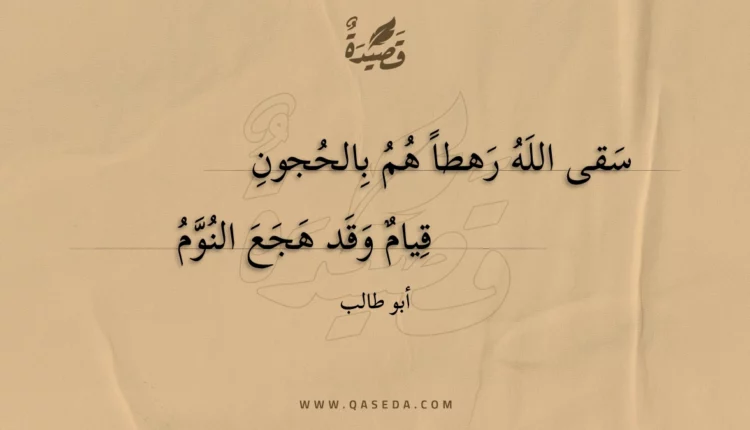 قَصِيْدَةٌ
سَقى اللَهُ رَهطاً هُمُ بِالحُجونِ
قِيامٌ وَقَد هَجَعَ النُوَّمُ
أبو طالب
WWW.QASEDA.COM